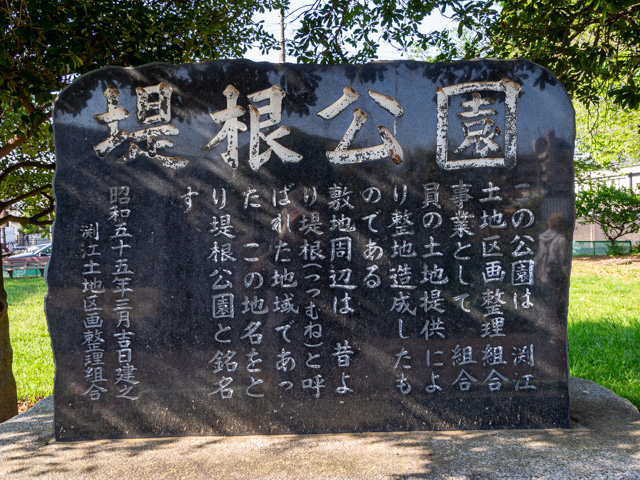 堤根公園
この公園は 渕江
土地区画整理組合
事業として 組合
員の土地提供によ
り整地造成したも
のである
敷地周辺は 昔よ
り堤根(つつむね)と呼
ばれた地域であっ
た この地名をと
り堤根公園と銘名
す
昭和五十五年三月吉日建之
渕江土地区画整理組合